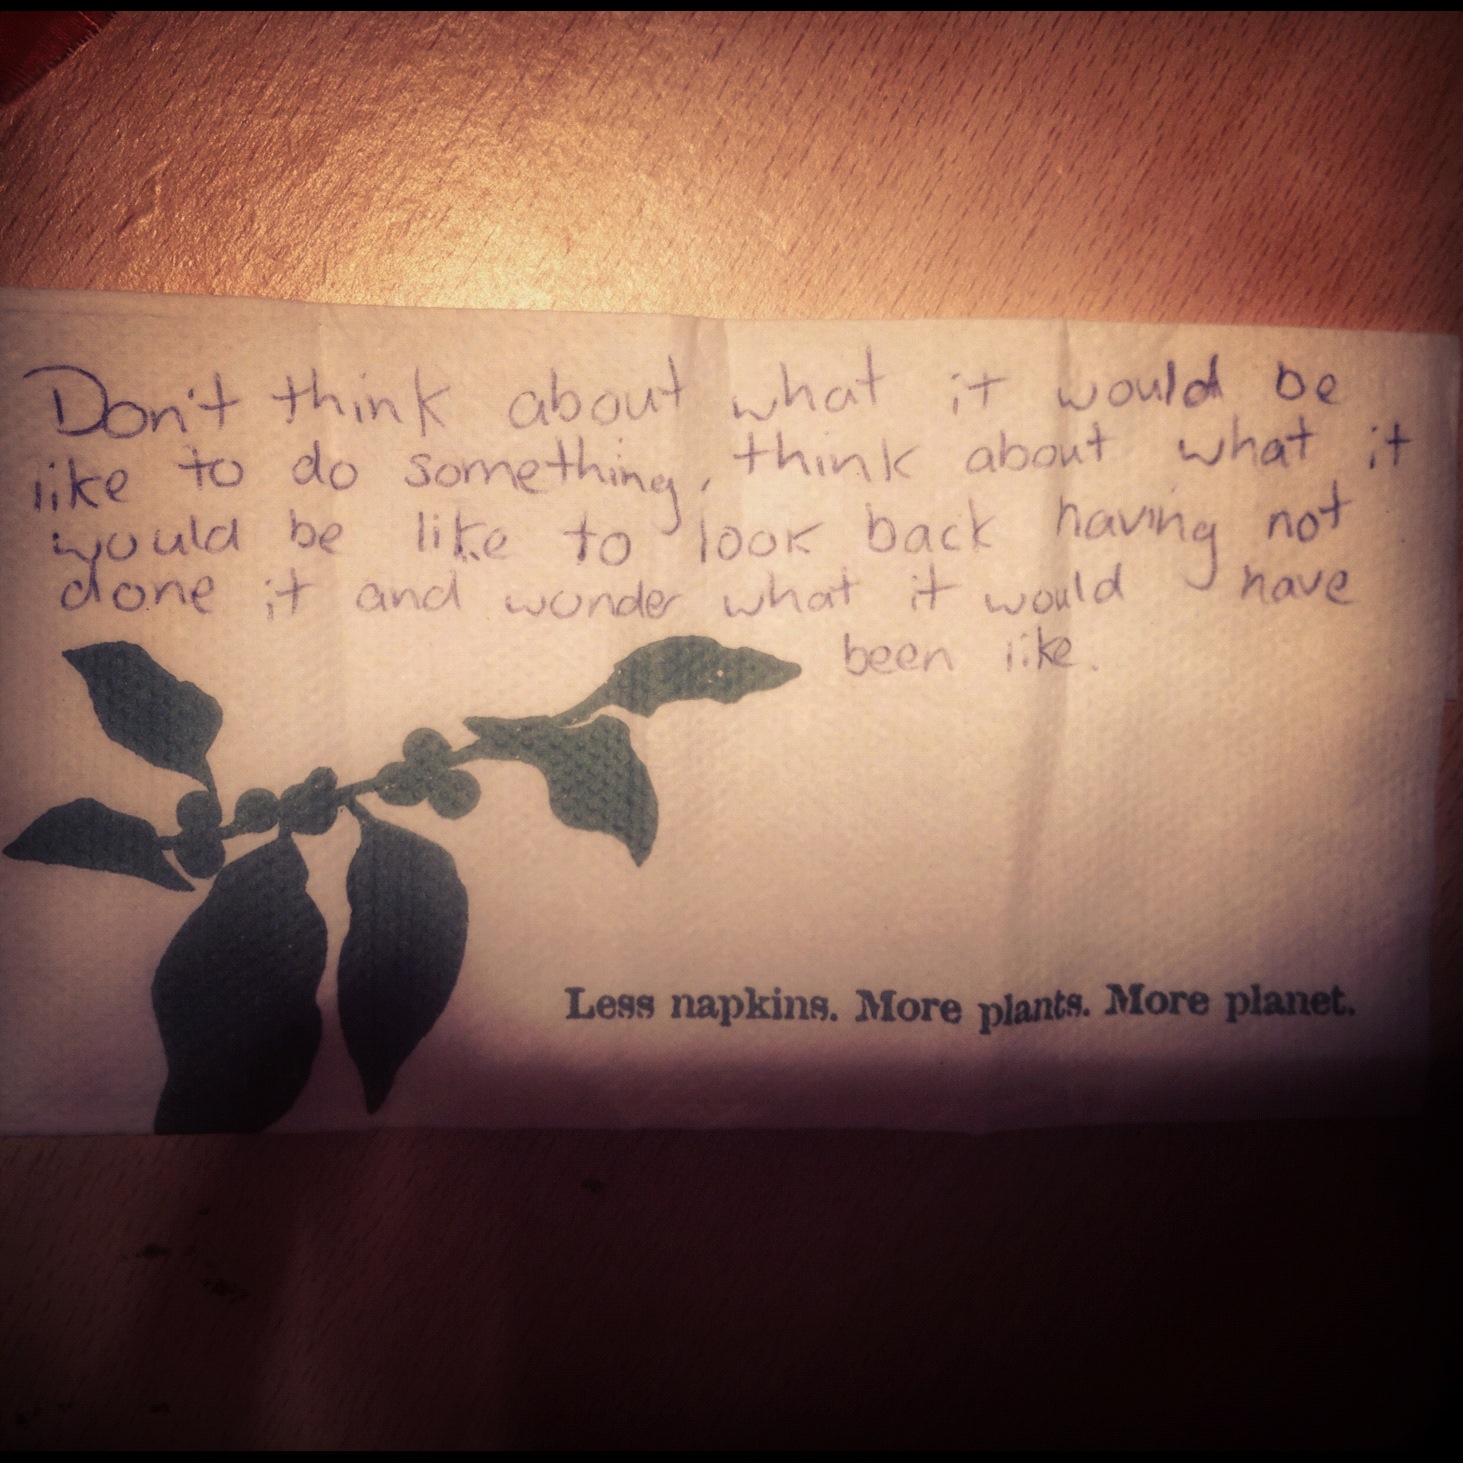 Don't think about what it would be
like to do something, think about what it
would be like to look back having not
done it and wonder what it would have
been like.
Less napkins. More plants. More planet.